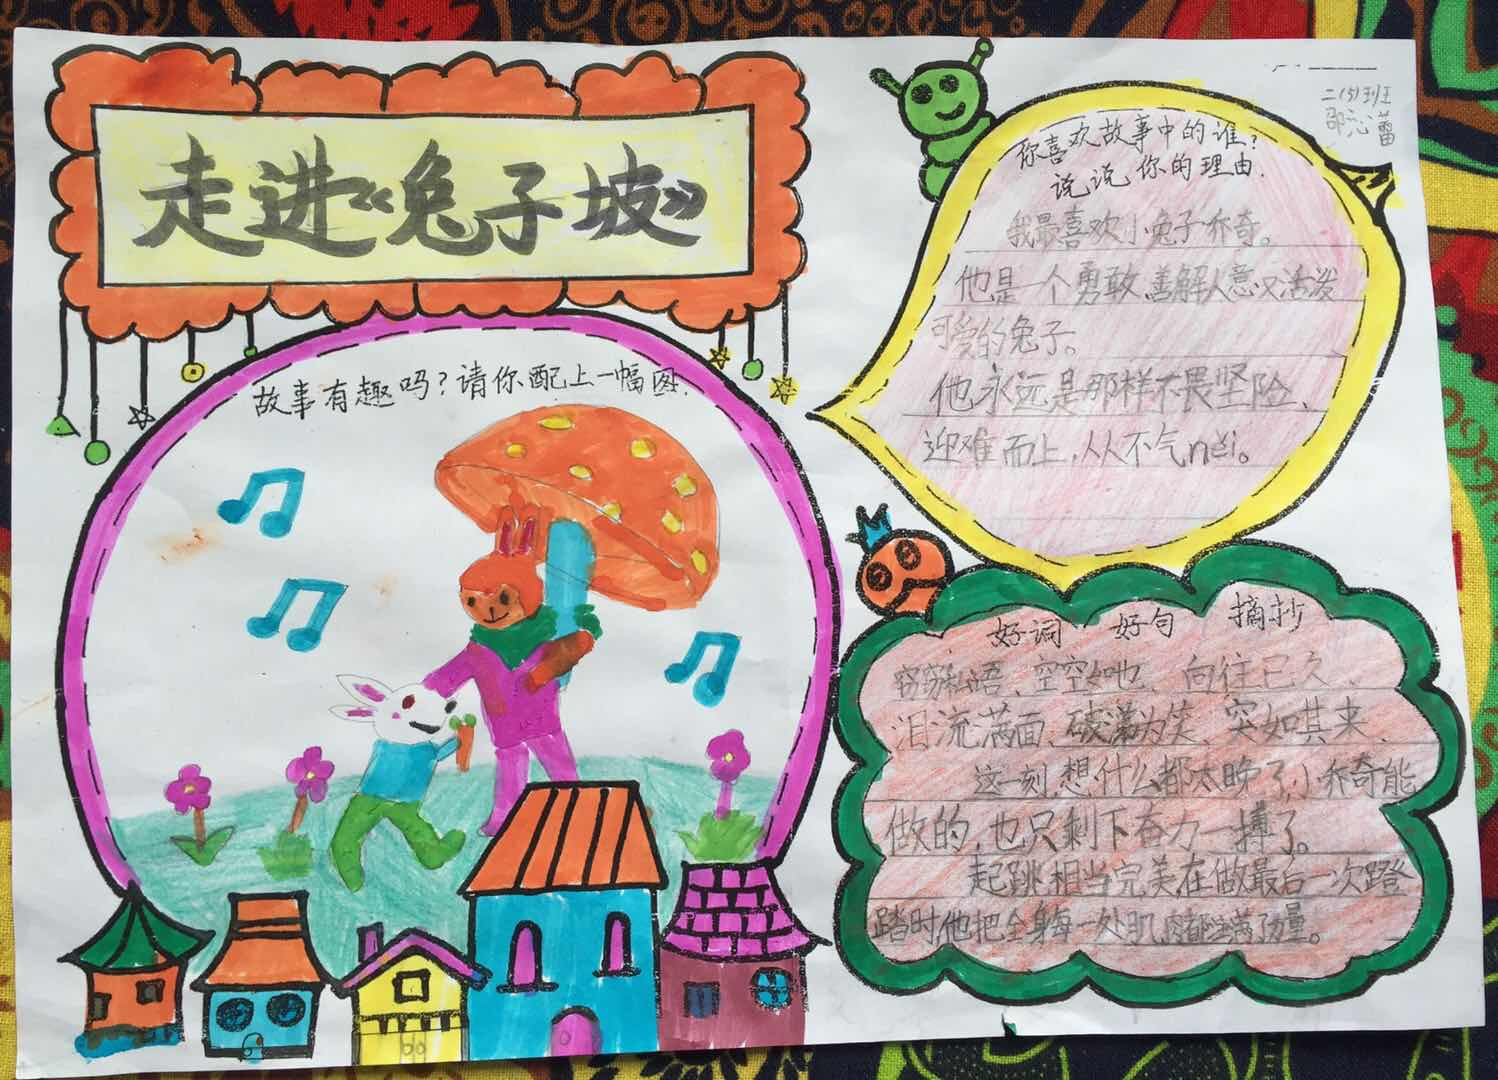 走进《兔子坡》
二(5)班
邵沁蕾
故事有趣吗?请你配上一幅图.
你喜欢故事中的谁?
说说你的理由.
我最喜欢小兔子乔奇。
他是一个勇敢善解人意又活泼
可爱的兔子。
他永远是那样不畏坚险、
迎难而上,从不气něi。
好词 好句 摘抄
窃窃私语、空空如也、向往已久、
泪流满面、破涕为笑、突如其来、
这一刻想什么都太晚了,小乔奇能
做的,也只剩下奋力一搏了。
起跳相当完美在做最后一次蹬
踏时他把全身每一处肌肉都注满了力量。